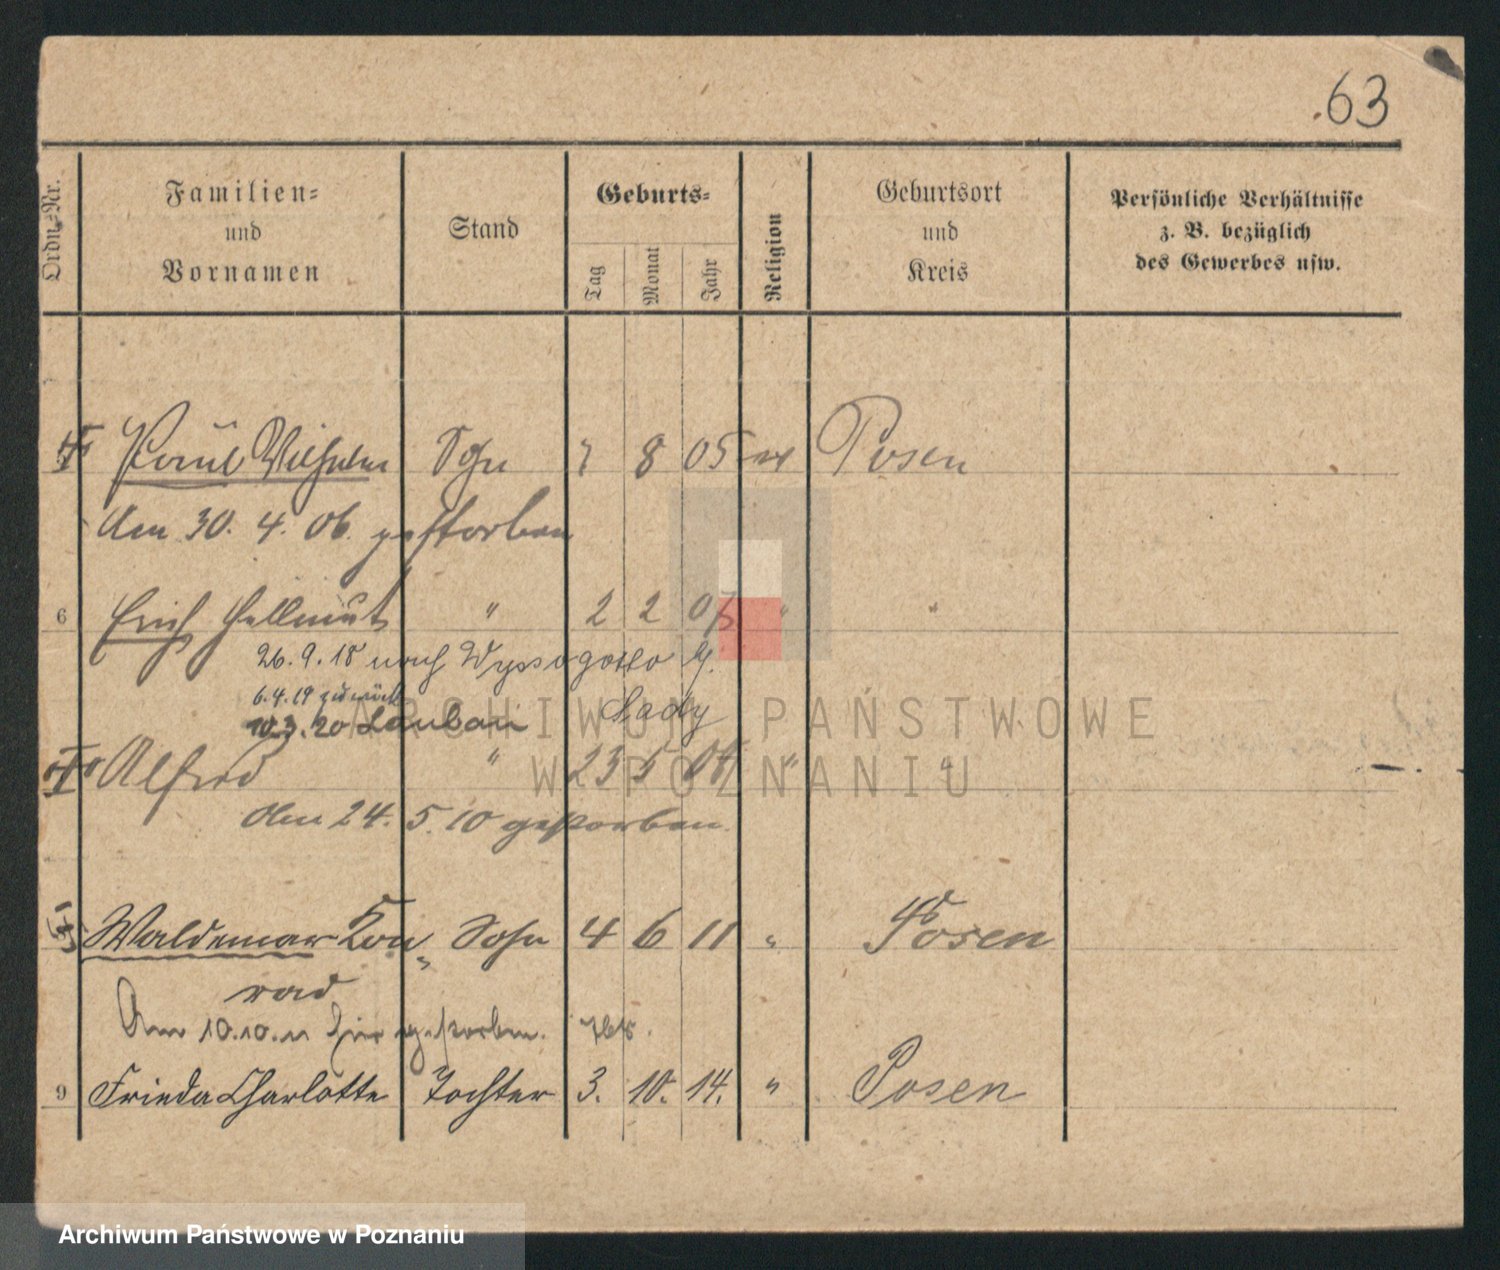 63
Ordn.-Nr.
Familien-
und
Vornamen
Stand
Geburts-
Tag
Monat
Jahr
Religion
Geburtsort
und
Kreis
Persönliche Verhältnisse
z. B. bezüglich
des Gewerbes usw.
Paul Wilhelm Sohn 7 8 05 ev Posen
Am 30. 4. 06. gestorben
6 Erich Hellmut " 2 2 07 " "
26.9.18 nach Wyssogotto
6.4.19 zurück
Sady
10.3.20 Lauban
Alfred " 23 5 09 " "
Am 24. 5. 10 gestorben.
Waldemar Kon„ Sohn 4 6 11 " Posen
rad
Am 10.10.11 hier gestorben.
9 Frieda Charlotte Tochter 3. 10. 14. " Posen
ARCHIWUM PAŃSTWOWE
W POZNANIU
Archiwum Państwowe w Poznaniu